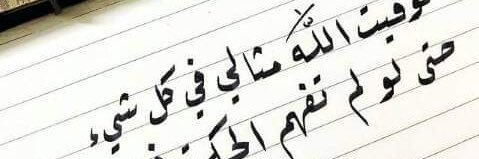 توقيت الله مثالي في كل شيء
حتى لو لم تفهم